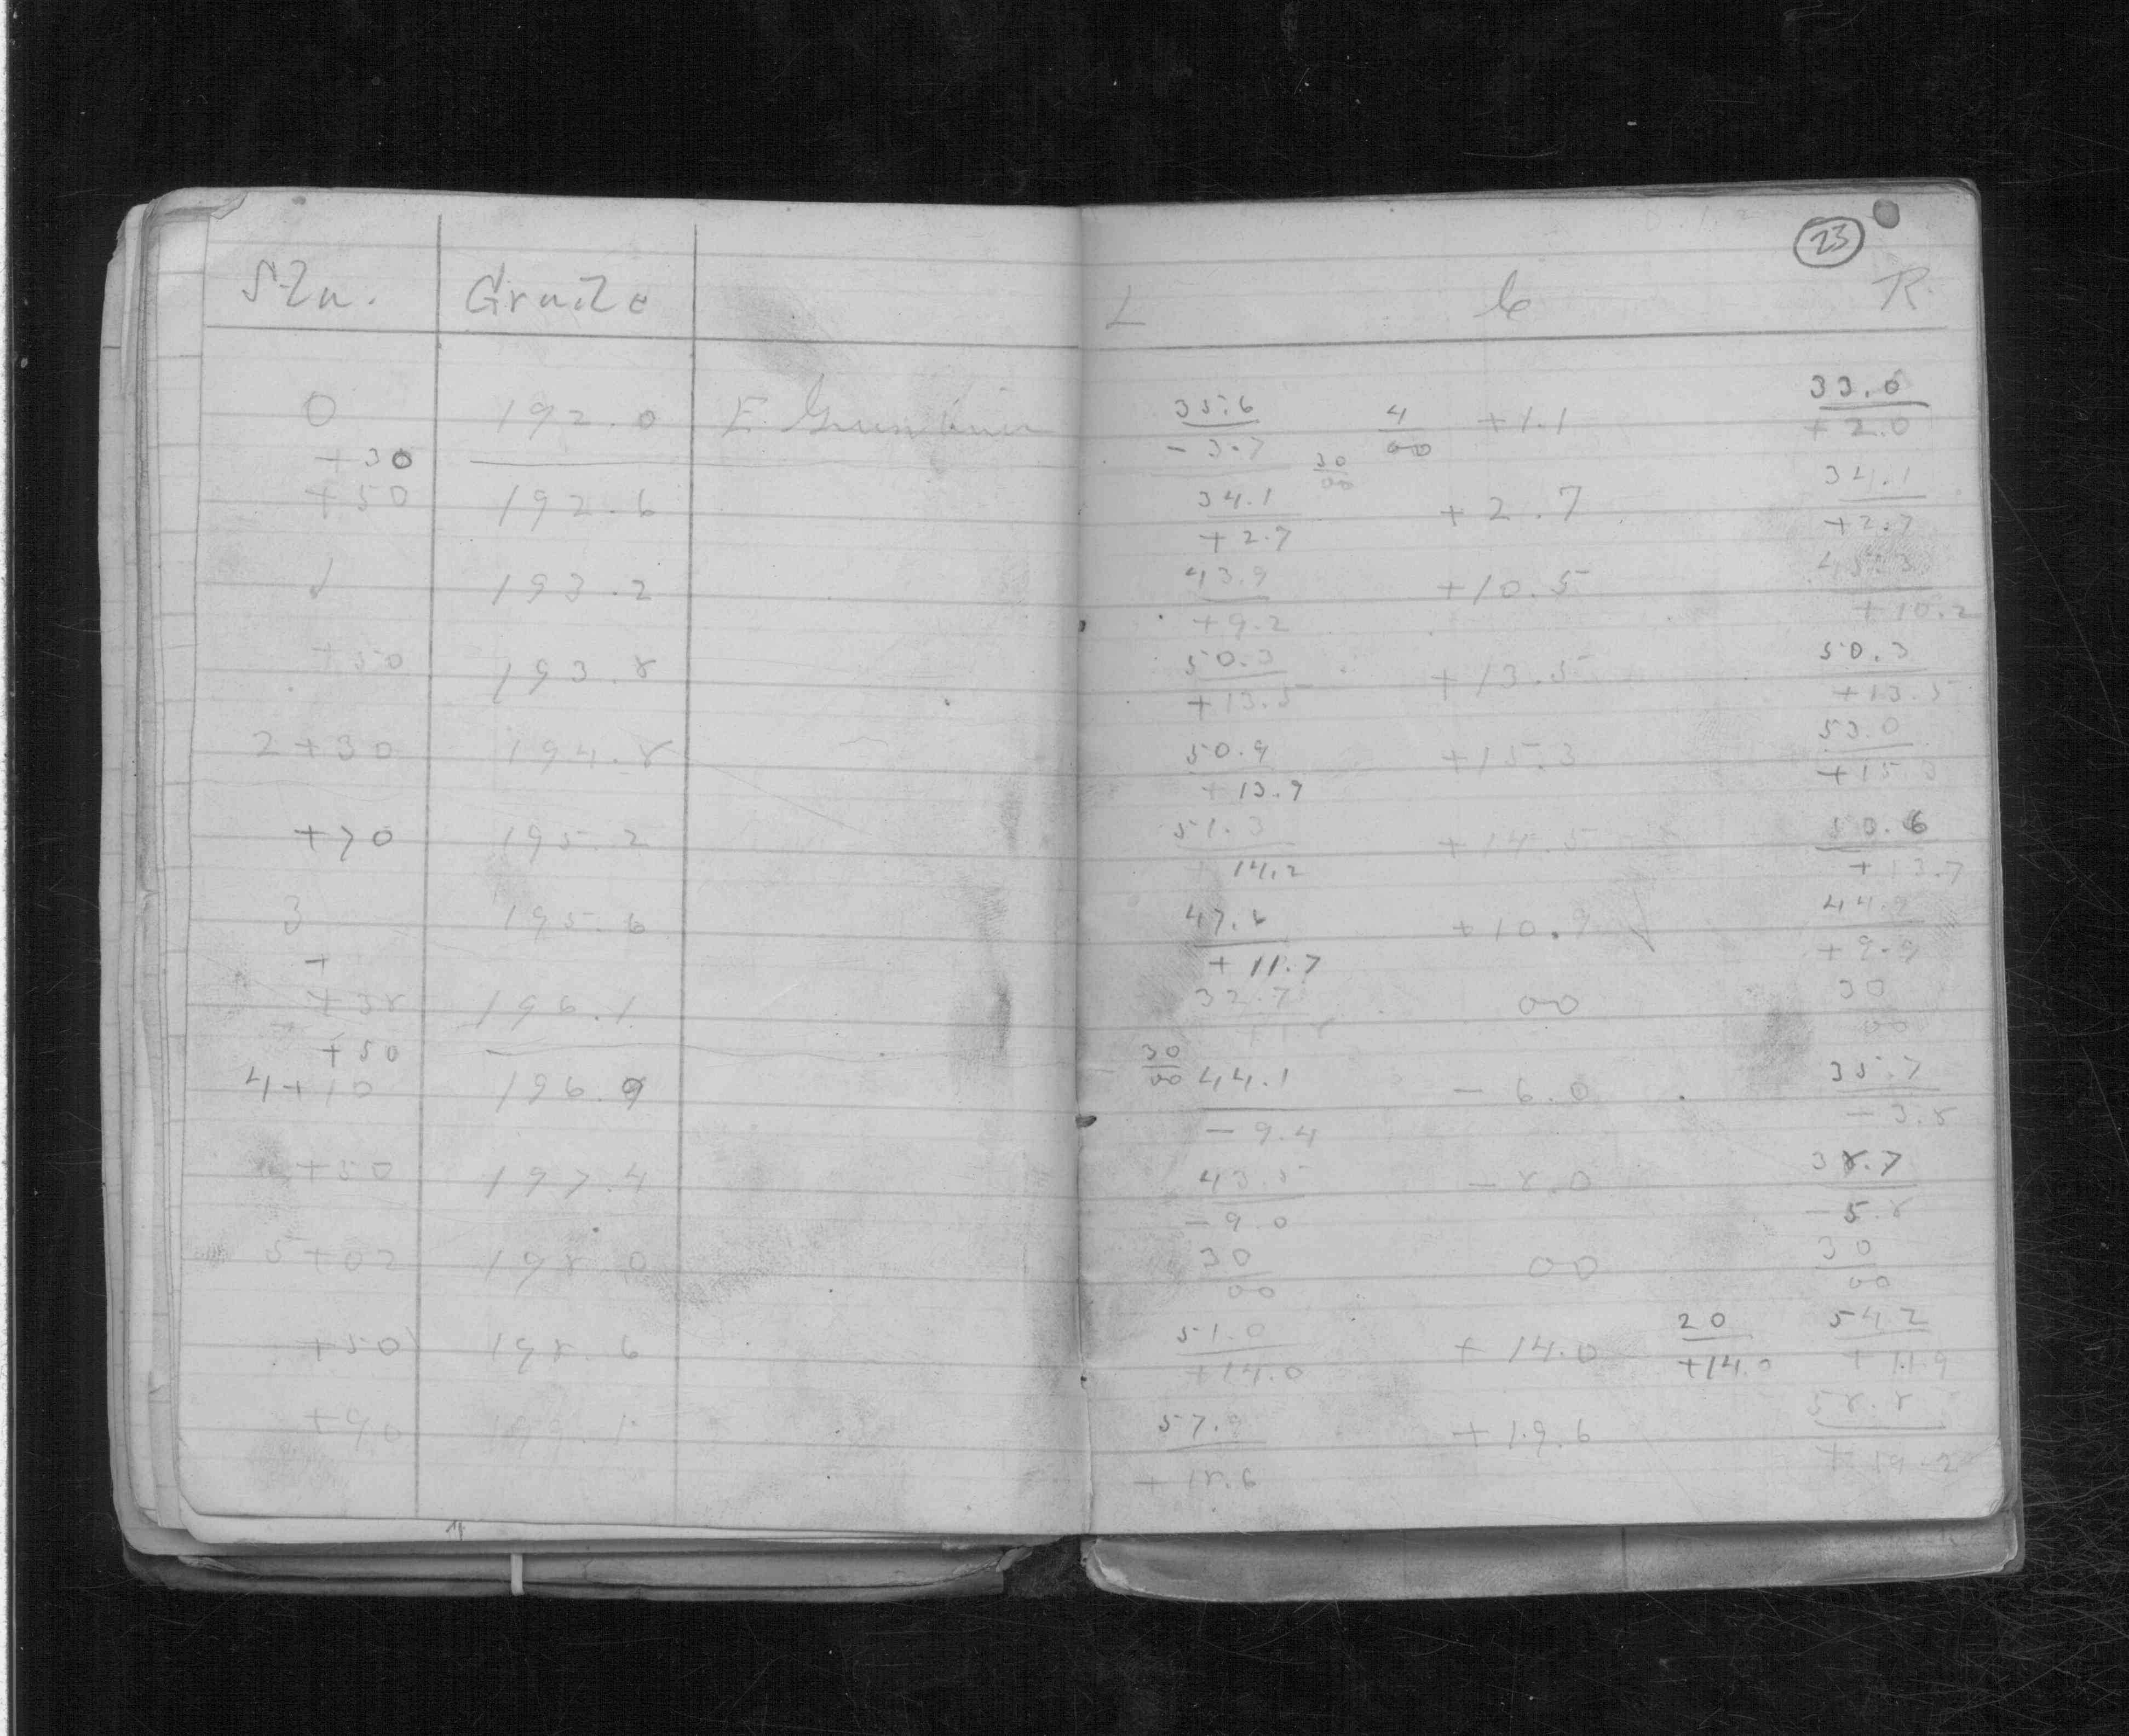 23
Sta. Grade L C R
0 192.0 E. 35.6/-3.7 4/00 +1.1 33.0/+2.0
+30 30/00
+50 192.6 34.1/+2.7 +2.7 34.1/+2.7
1 193.2 43.9/+9.2 +10.5 45.3/+10.2
+50 193.8 50.3/+13.5 +13.5 50.3/+13.5
2+30 194.8 50.9/+13.9 +15.3 53.0/+15.3
+70 195.2 51.3/14.2 +14.5 50.6/+13.7
3 195.6 47.6/+11.7 +10.9 44.9/+9.9
+
+38 196.1 32.7/ 00 30/00
+50 30/00
4+10 196.9 44.1/-9.4 -6.0 35.7/-3.8
+50 197.4 43.5/-9.0 -8.0 38.7/-5.8
5+02 198.0 30/00 00 30/00
+50 198.6 51.0/+14.0 +14.0 20/+14.0 54.2/
+90 199.1 57.9/+18.6 +19.6 58.8/+19.2